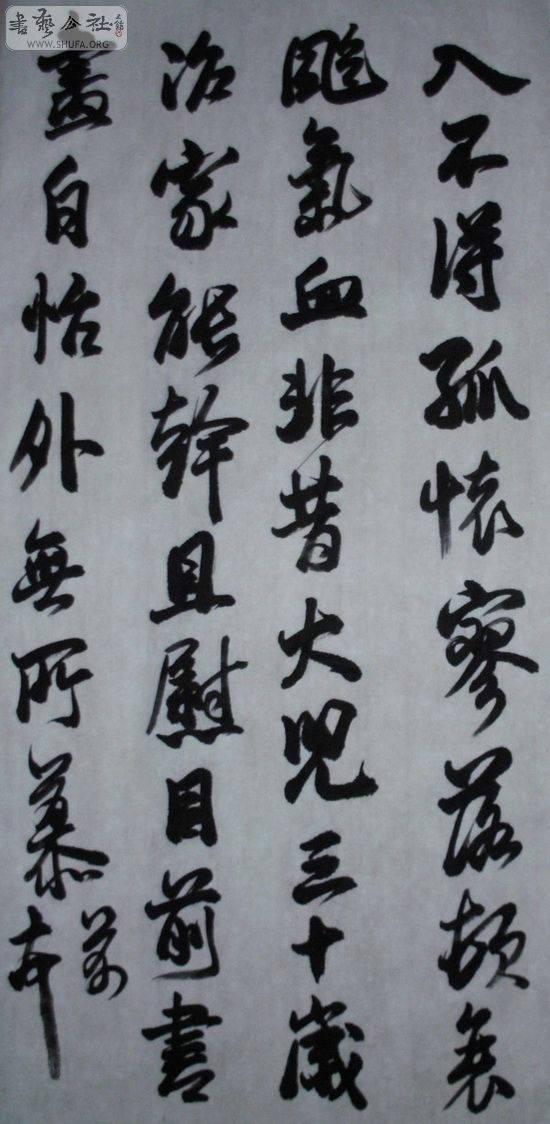 書藝公社
WWW.SHUFA.ORG
入不得孤懷寥落頓衰
颯氣血非昔大兒三十歲
治家能幹且慰目前書
畫自怡外無所慕